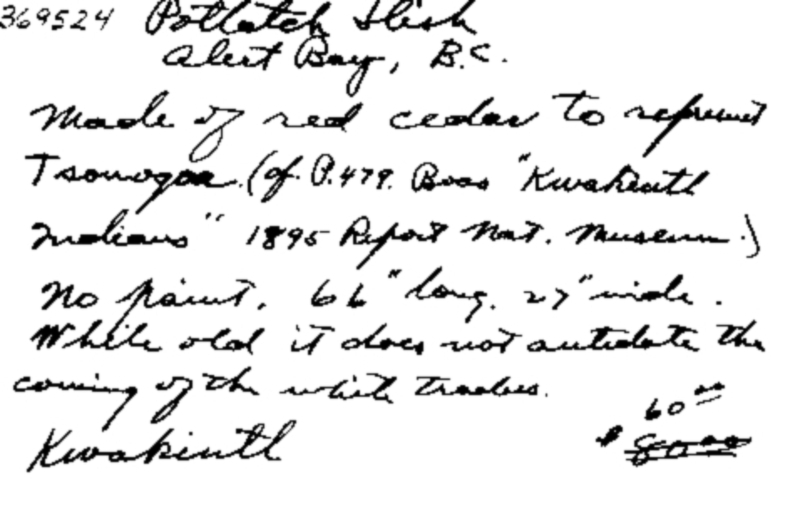 369524 Potlatch Dish
Alert Bay, B.C.
Made of red cedar to represent
Tsonoqoa (cf. P. 479. Boas "Kwakiutl
Indians" 1895 Report Nat. Museum.)
No paint. 66" long. 27" wide.
While old it does not antidate the
coming of the white traders.
60 00
Kwakiutl $ 80 00